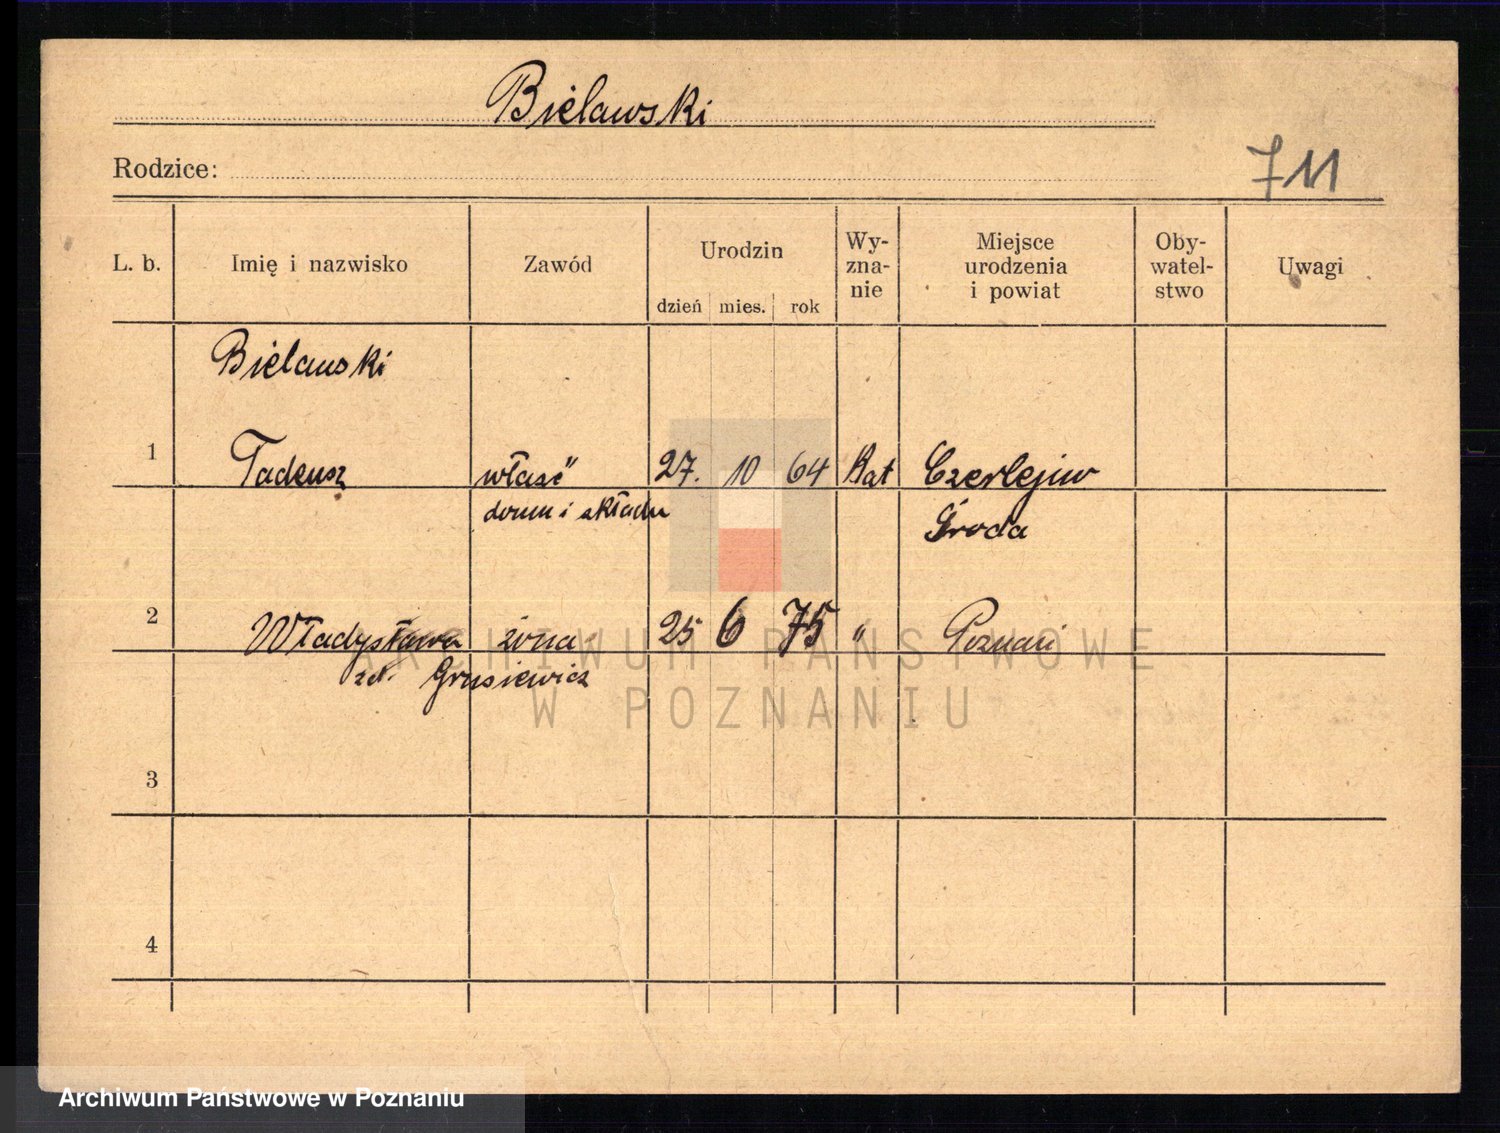 Bielawski
Rodzice:
711
L. b. Imię i nazwisko Zawód Urodzin dzień mies. rok Wy-zna-nie Miejsce urodzenia i powiat Oby-watel-stwo Uwagi
Bielawski
1 Tadeusz właść 27. 10 64 Kat Czerlejno
domu i składu Środa
2 Władysława żona 25 6 75 " Poznań
zd. Grusiewicz
3
4
ARCHIWUM PAŃSTWOWE
W POZNANIU
Archiwum Państwowe w Poznaniu